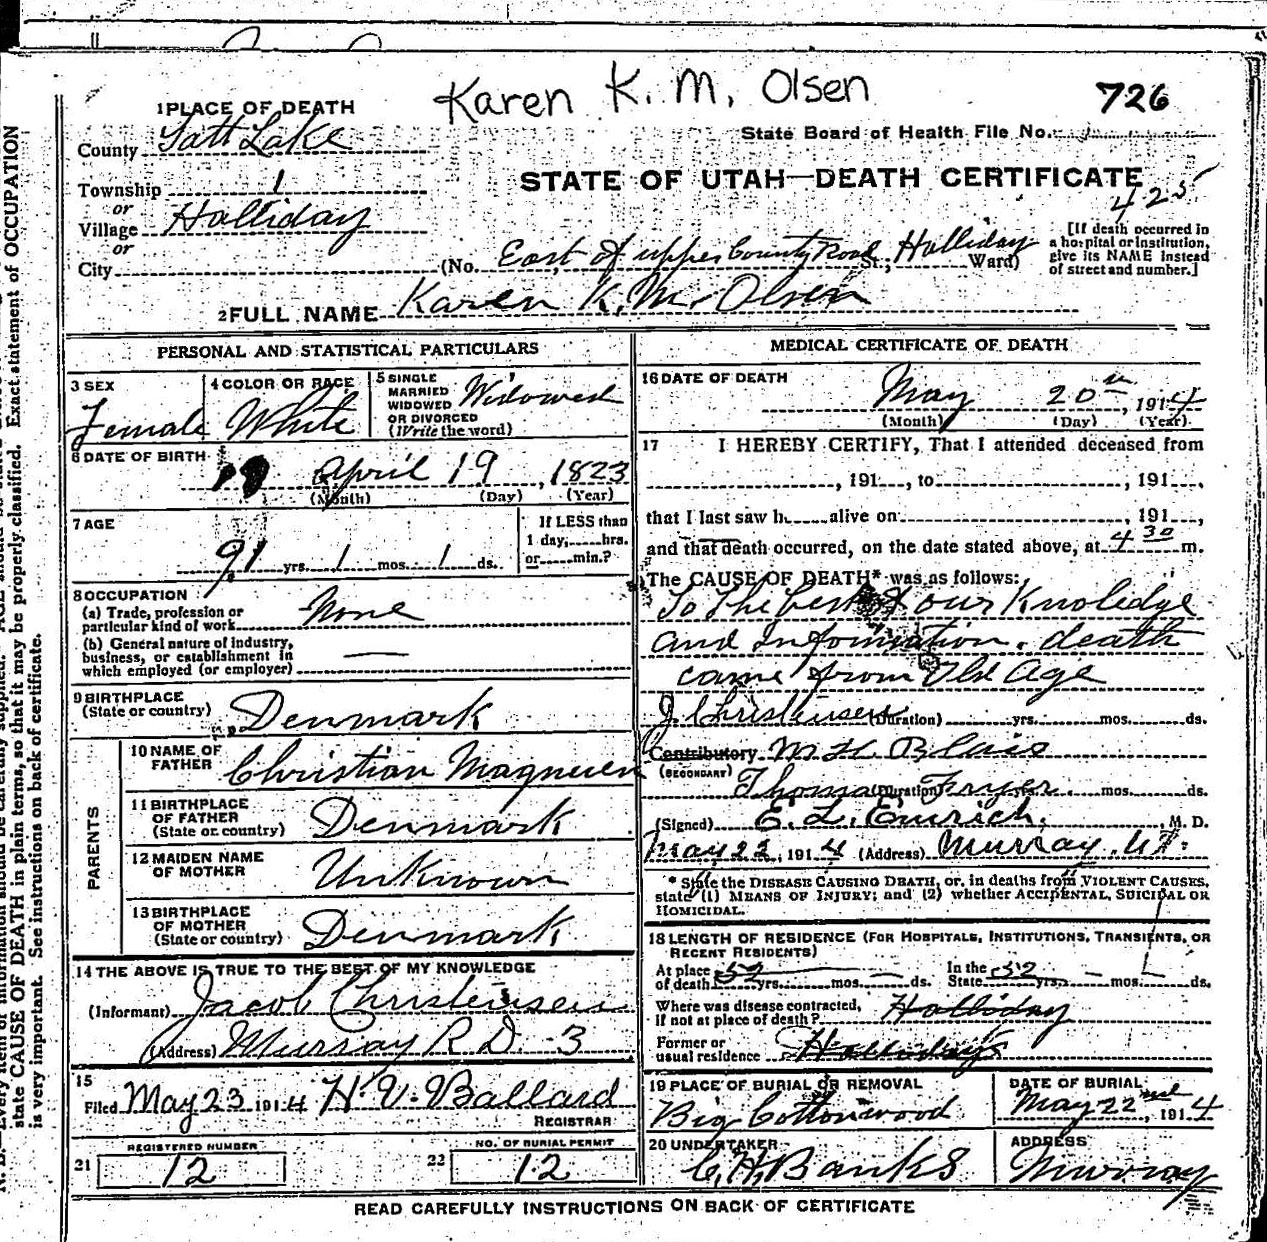 Karen K. M. Olsen
726
1 PLACE OF DEATH
State Board of Health File No.
County Salt Lake
STATE OF UTAH—DEATH CERTIFICATE
Township 1
425
or
Village Holliday
or
City (No. East of upper County Road St.; Holliday Ward)
[If death occurred in a hospital or institution, give its NAME instead of street and number.]
2 FULL NAME Karen K. M. Olsen
PERSONAL AND STATISTICAL PARTICULARS
3 SEX Female
4 COLOR OR RACE White
5 SINGLE MARRIED WIDOWED OR DIVORCED (Write the word) Widowed
6 DATE OF BIRTH April 19, 1823
(Month) (Day) (Year)
7 AGE 91 yrs. 1 mos. 1 ds.
If LESS than 1 day, hrs. or min.?
8 OCCUPATION
(a) Trade, profession or particular kind of work None
(b) General nature of industry, business, or establishment in which employed (or employer) —
9 BIRTHPLACE (State or country) Denmark
PARENTS
10 NAME OF FATHER Christian Magnusen
11 BIRTHPLACE OF FATHER (State or country) Denmark
12 MAIDEN NAME OF MOTHER Unknown
13 BIRTHPLACE OF MOTHER (State or country) Denmark
14 THE ABOVE IS TRUE TO THE BEST OF MY KNOWLEDGE
(Informant) Jacob Christensen
(Address) Murray R D 3
15
Filed May 23 1914 H. V. Ballard
REGISTRAR
21 REGISTERED NUMBER 12
22 NO. OF BURIAL PERMIT 12
MEDICAL CERTIFICATE OF DEATH
16 DATE OF DEATH May 20th, 1914
(Month) (Day) (Year)
17 I HEREBY CERTIFY, That I attended deceased from
, 191 , to , 191 ,
that I last saw h alive on , 191 ,
and that death occurred, on the date stated above, at 4 30 m.
The CAUSE OF DEATH* was as follows:
To the best of our Knoledge
and Information. death
came from Old Age
J. Christensen (Duration) yrs. mos. ds.
Contributory M H Blair
(SECONDARY)
Thomas Fryer. (Duration) yrs. mos. ds.
(Signed) E. L. Emrich. , M. D.
May 22, 1914 (Address) Murray. Ut.
* State the DISEASE CAUSING DEATH, or, in deaths from VIOLENT CAUSES,
state (1) MEANS OF INJURY; and (2) whether ACCIDENTAL, SUICIDAL OR
HOMICIDAL.
18 LENGTH OF RESIDENCE (FOR HOSPITALS, INSTITUTIONS, TRANSIENTS, OR
RECENT RESIDENTS)
At place of death 52 yrs. mos. ds. In the State 52 yrs. mos. ds.
Where was disease contracted, if not at place of death? Holliday
Former or usual residence Holliday
19 PLACE OF BURIAL OR REMOVAL Big Cottonwood
DATE OF BURIAL May 22nd, 1914
20 UNDERTAKER C. H. Banks
ADDRESS Murray
READ CAREFULLY INSTRUCTIONS ON BACK OF CERTIFICATE
state CAUSE OF DEATH in plain terms, so that it may be properly classified. Exact statement of OCCUPATION
is very important. See instructions on back of certificate.